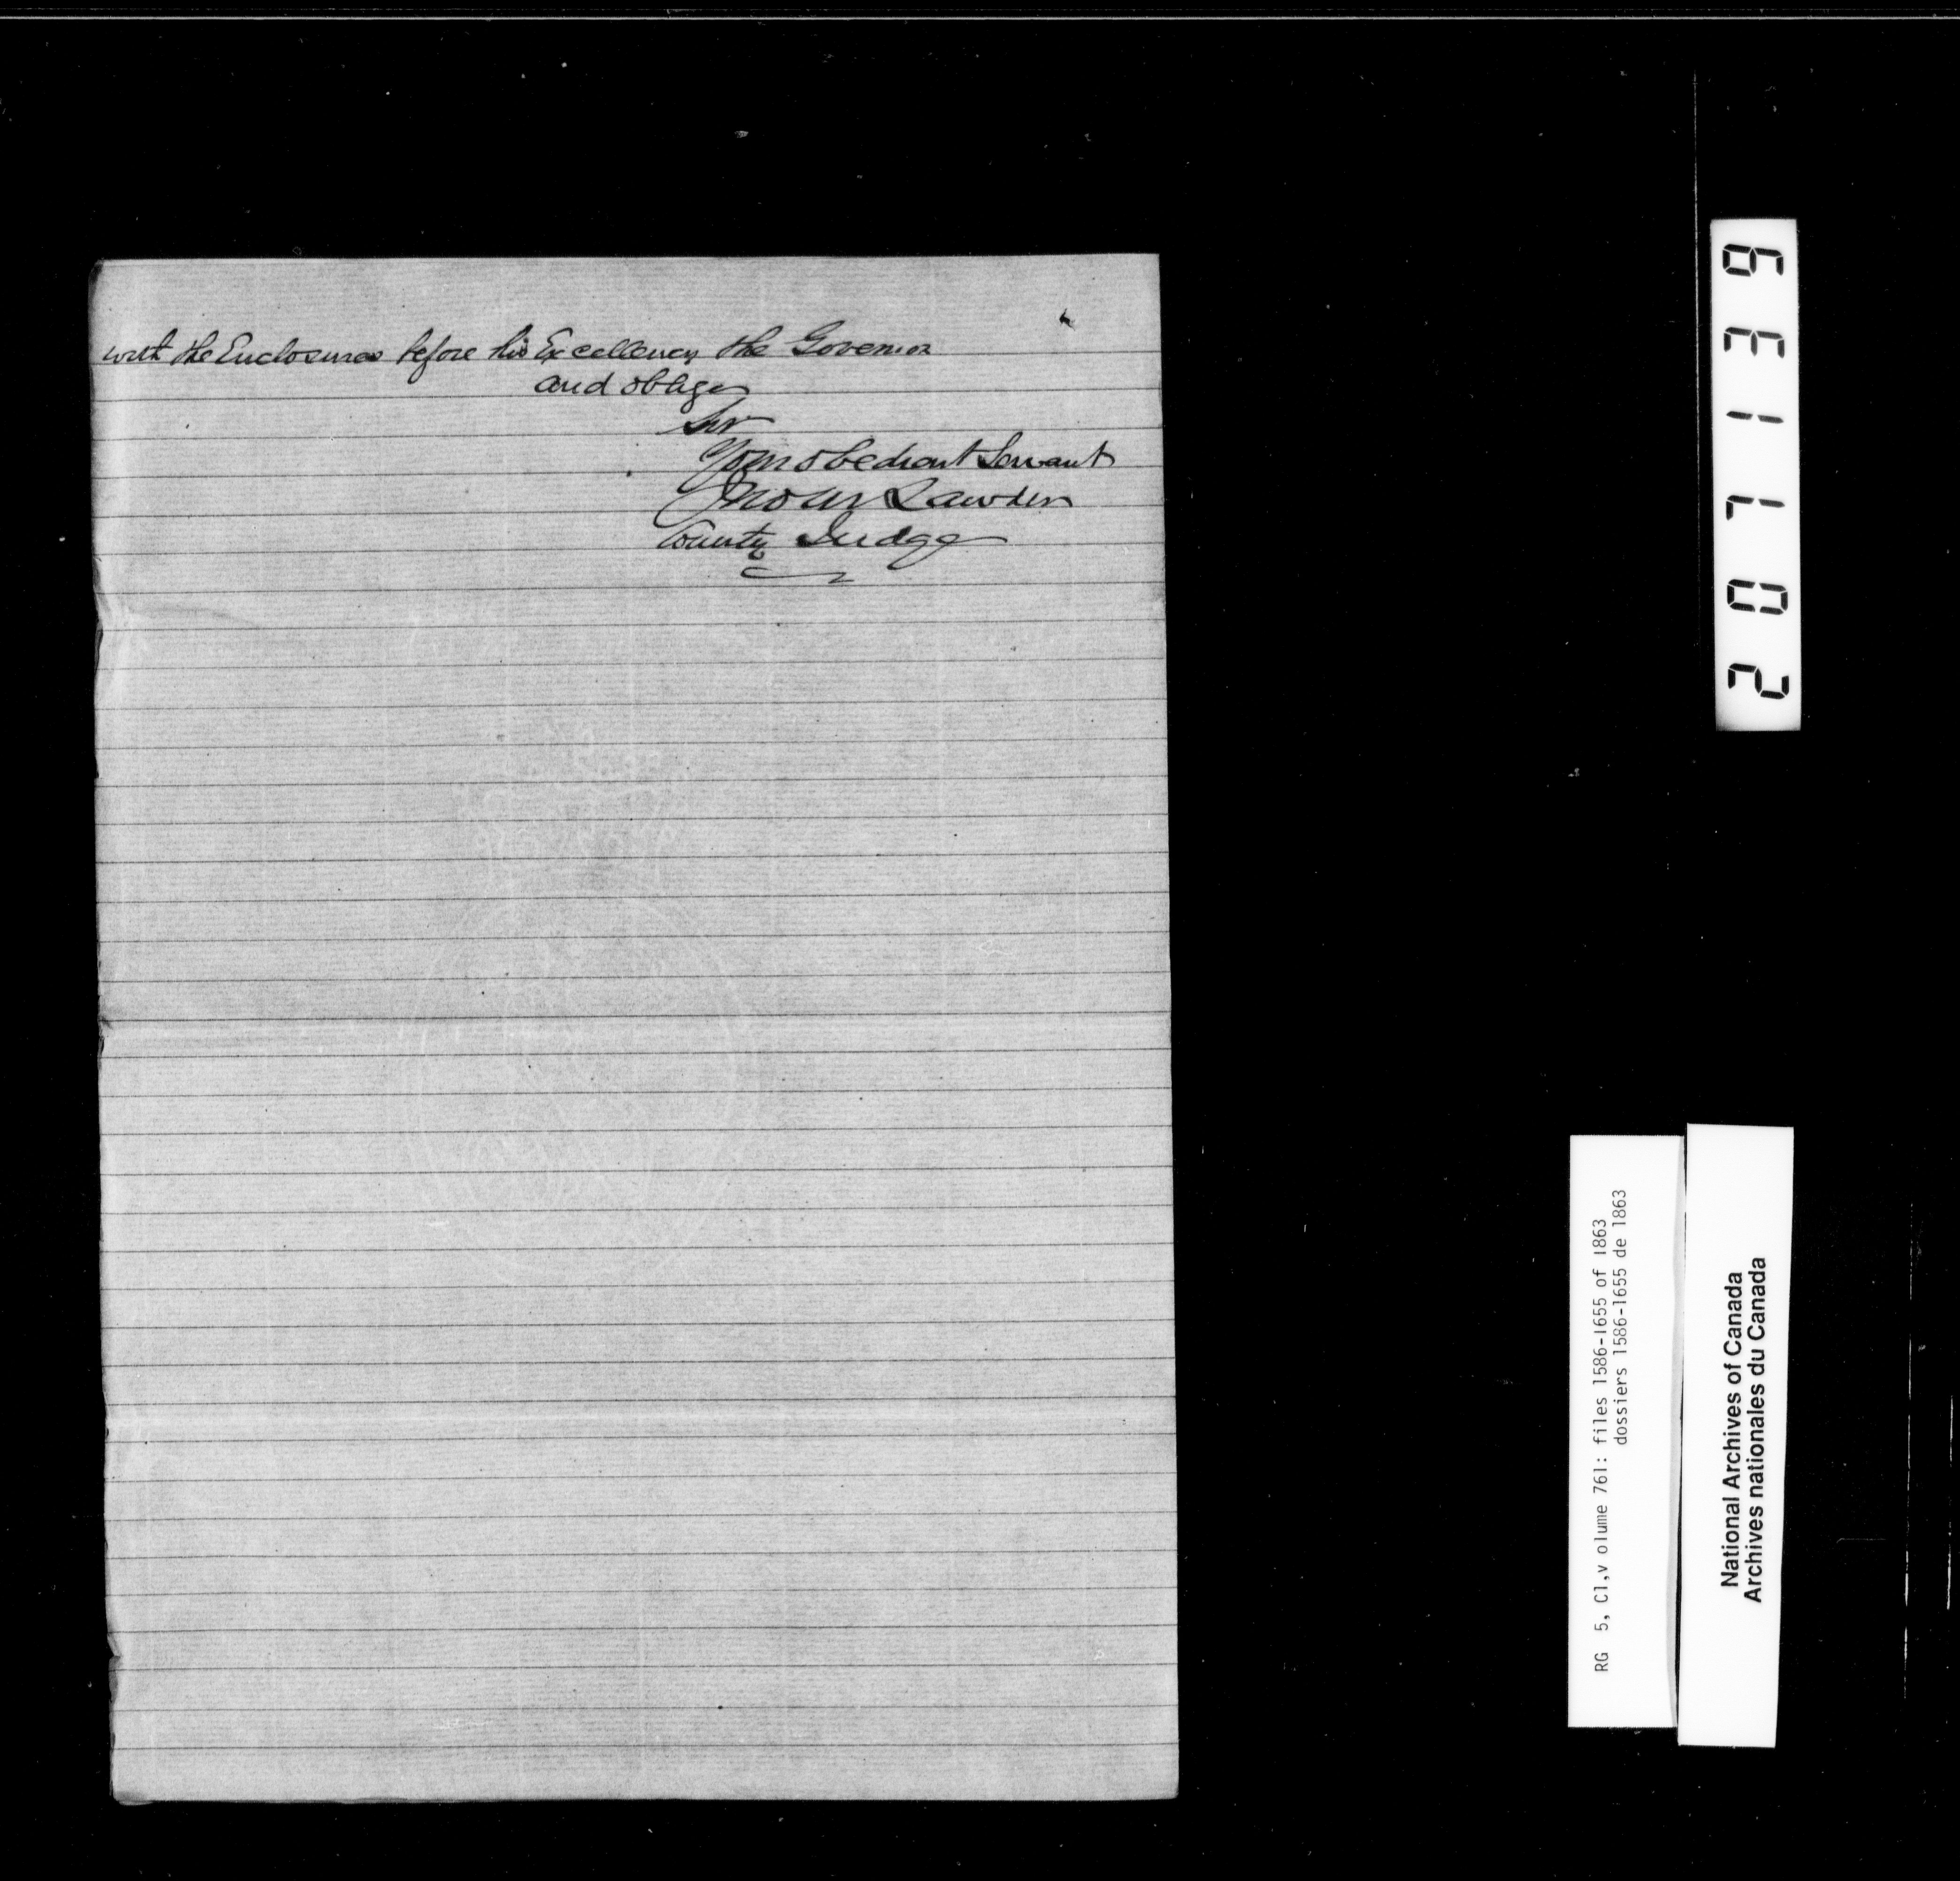 with the Enclosures before his Excellency the Governor
and oblige
Sir
Your obedient Servant
Jno W Lawder
County Judge
207139
RG 5, C1,v olume 761: files 1586-1655 of 1863
dossiers 1586-1655 de 1863
National Archives of Canada
Archives nationales du Canada